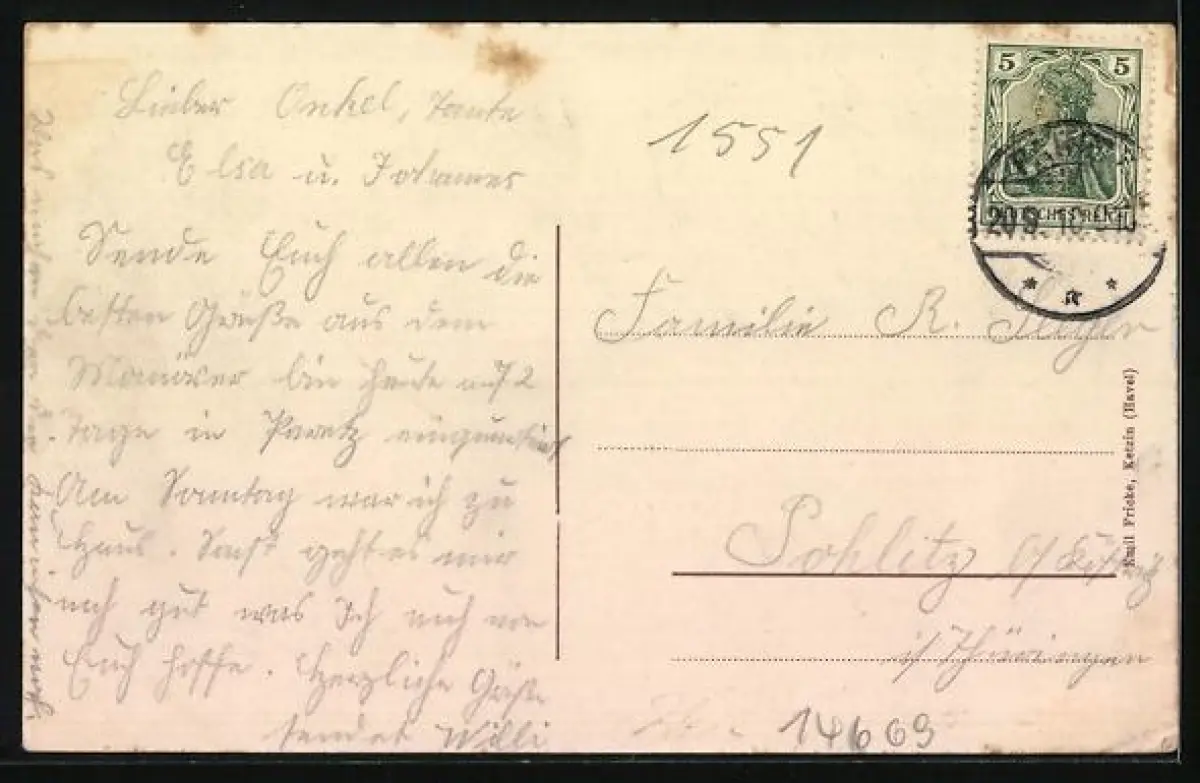 Lieber Onkel, Tante
Elsa u. Johannes
Sende Euch allen die
besten Grüße aus dem
Manöver bin heute auf 2
Tage in Paretz einquartiert
Am Sonntag war ich zu
Haus. Sonst geht es mir
noch gut was Ich auch von
Euch hoffe. Herzliche Grüße
sendet Willi
1551
5 5
DEUTSCHES REICH
20 9 10
* a *
Familie R.
Pohlitz b/ Köstritz
i/ Thüringen
Emil Fricke, Ketzin (Havel)
14669